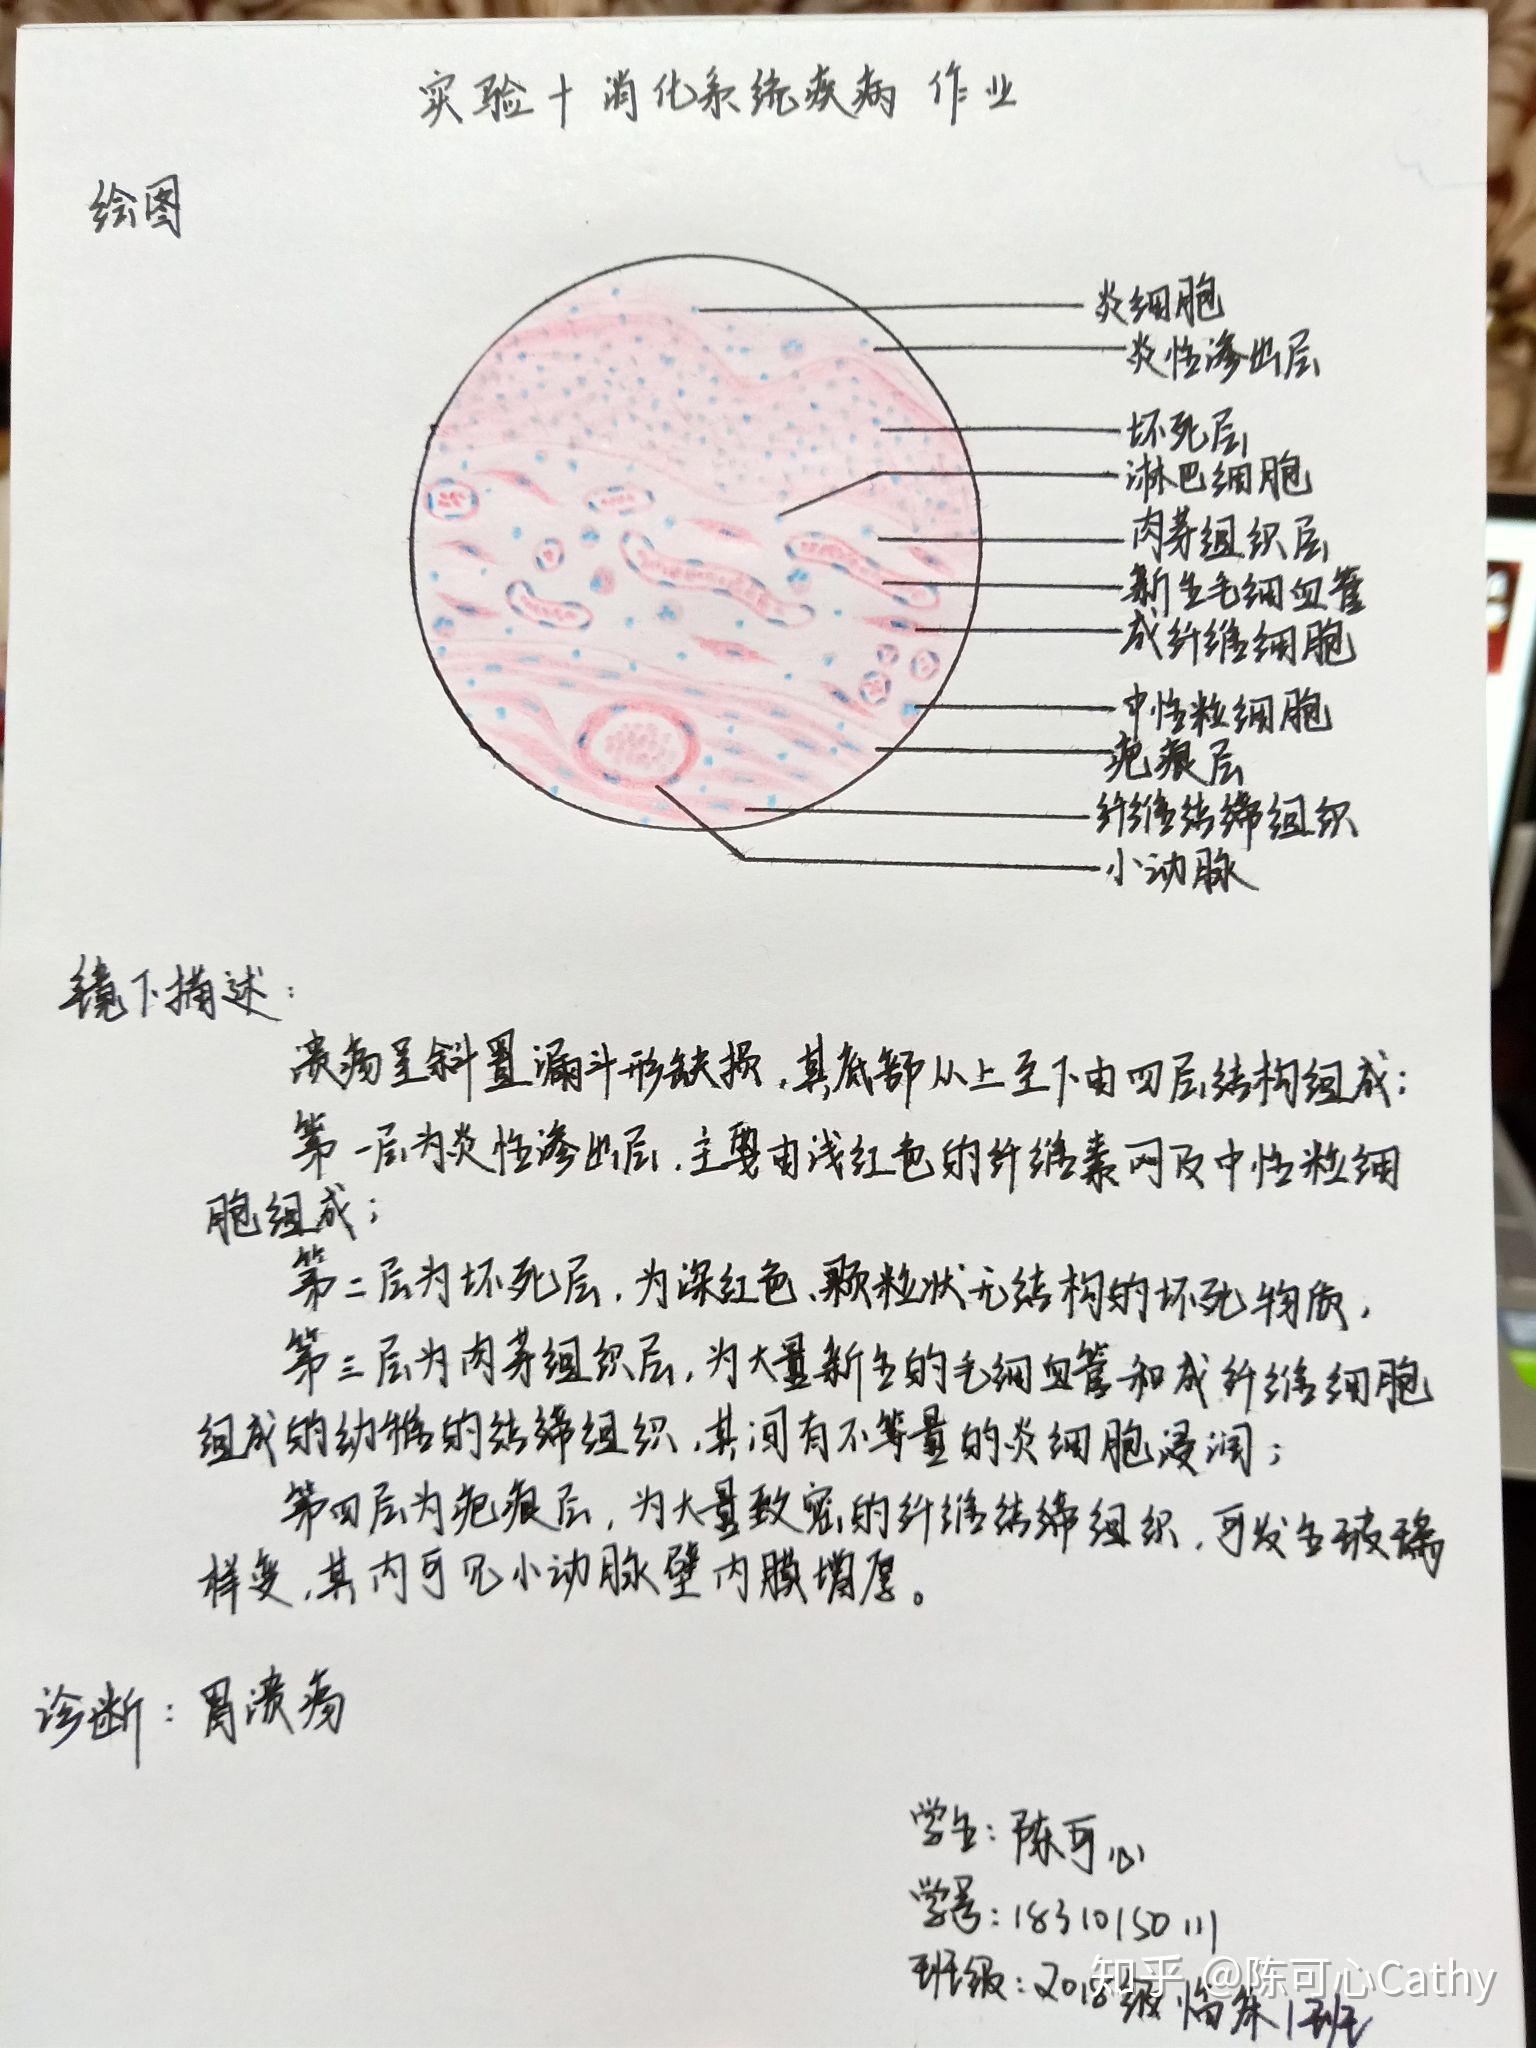 实验十 消化系统疾病 作业
绘图
炎细胞
炎性渗出层
坏死层
淋巴细胞
肉芽组织层
新生毛细血管
成纤维细胞
中性粒细胞
疤痕层
纤维结缔组织
小动脉
镜下描述：
溃疡呈斜置漏斗形缺损，其底部从上至下由四层结构组成：
第一层为炎性渗出层，主要由浅红色的纤维素网及中性粒细
胞组成；
第二层为坏死层，为深红色、颗粒状无结构的坏死物质，
第三层为肉芽组织层，为大量新生的毛细血管和成纤维细胞
组成的幼稚的结缔组织，其间有不等量的炎细胞浸润；
第四层为疤痕层，为大量致密的纤维结缔组织，可发生玻璃
样变，其内可见小动脉壁内膜增厚。
诊断：胃溃疡
学生：陈可心
学号：18310150111
班级：2018级临床1班
知乎 @陈可心Cathy